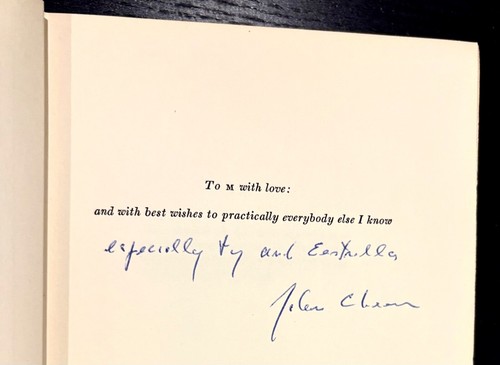 To M with love:
and with best wishes to practically everybody else I know
especially Ty and Eestrella
John Cheever